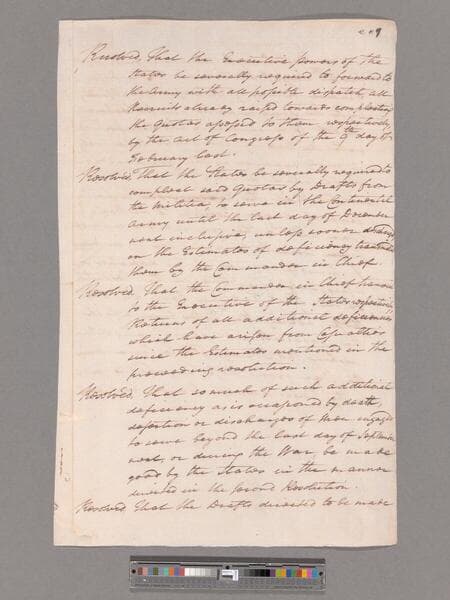 Resolved, That the Executive powers of the
States be severally required to forward to
the Army with all possible dispatch all
Recruits already raised towards compleating
the Quotas assessed to them respectively
by the act of Congress of the 9th day of
February last.
Resolved, That the States be severally required to
compleat said Quotas by Drafts from
the Militia, to serve in the Continental
Army until the last day of December
next inclusive, unless sooner discharged
on the Estimates of deficiency transmitted
them by the Commander in Chief
Resolved. That the Commander in Chief transmit
to the Executive of the States respectively
Returns of all additional deficiencies
which have arisen from Casualties
since the Estimates mentioned in the
preceeding resolution.
Resolved. That so much of such additional
deficiency as is occasioned by death,
desertion or discharges of Men engaged
to serve beyond the last day of September
next, or during the War, be made
good by the States in the manner
directed in the second Resolution.
Resolved That the Drafts directed to be made